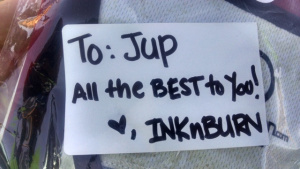 To: Jup
All the BEST to You!
♥, INKnBURN
.com